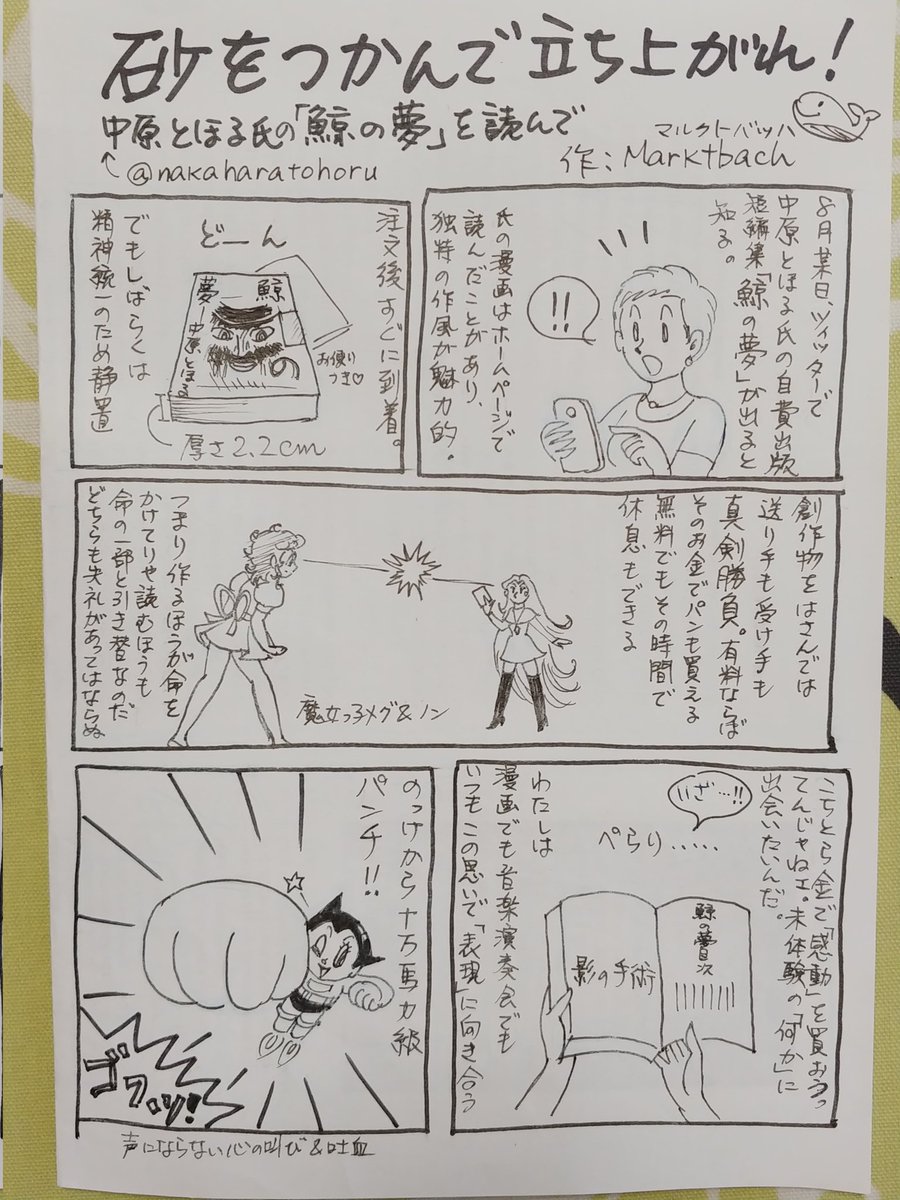 砂をつかんで立ち上がれ!
中原とほる氏の「鯨の夢」を読んで
@nakaharatohoru
マルクトバッハ
作:Marktbach
8月某日、ツィッターで
中原とほる氏の自費出版
短編集「鯨の夢」が出ると
知る。
!!
氏の漫画はホームページで
読んだことがあり、
独特の作風が魅力的。
注文後すぐに到着。
どーん
鯨
の
夢
中原とほる
お便り
つき♡
厚さ2.2cm
でもしばらくは
精神統一のため静置
創作物をはさんでは
送り手も受け手も
真剣勝負。有料ならば
そのお金でパンも買える
無料でもその時間で
休息もできる
魔女っ子メグ&ノン
つまり作るほうが命を
かけてりゃ読むほうも
命の一部と引き替なのだ
どちらも失礼があってはならぬ
こちとら金で「感動」を買おうっ
てんじゃねエ。未体験の「何か」に
出会いたいんだ。
いざ…!!
ぺらり.....
鯨の夢目次
影の手術
わたしは
漫画でも音楽演奏会でも
いつもこの思いで「表現」に向き合う
のっけから十万馬力級
パンチ!!
ゴワッ!
声にならない心の叫び&吐血